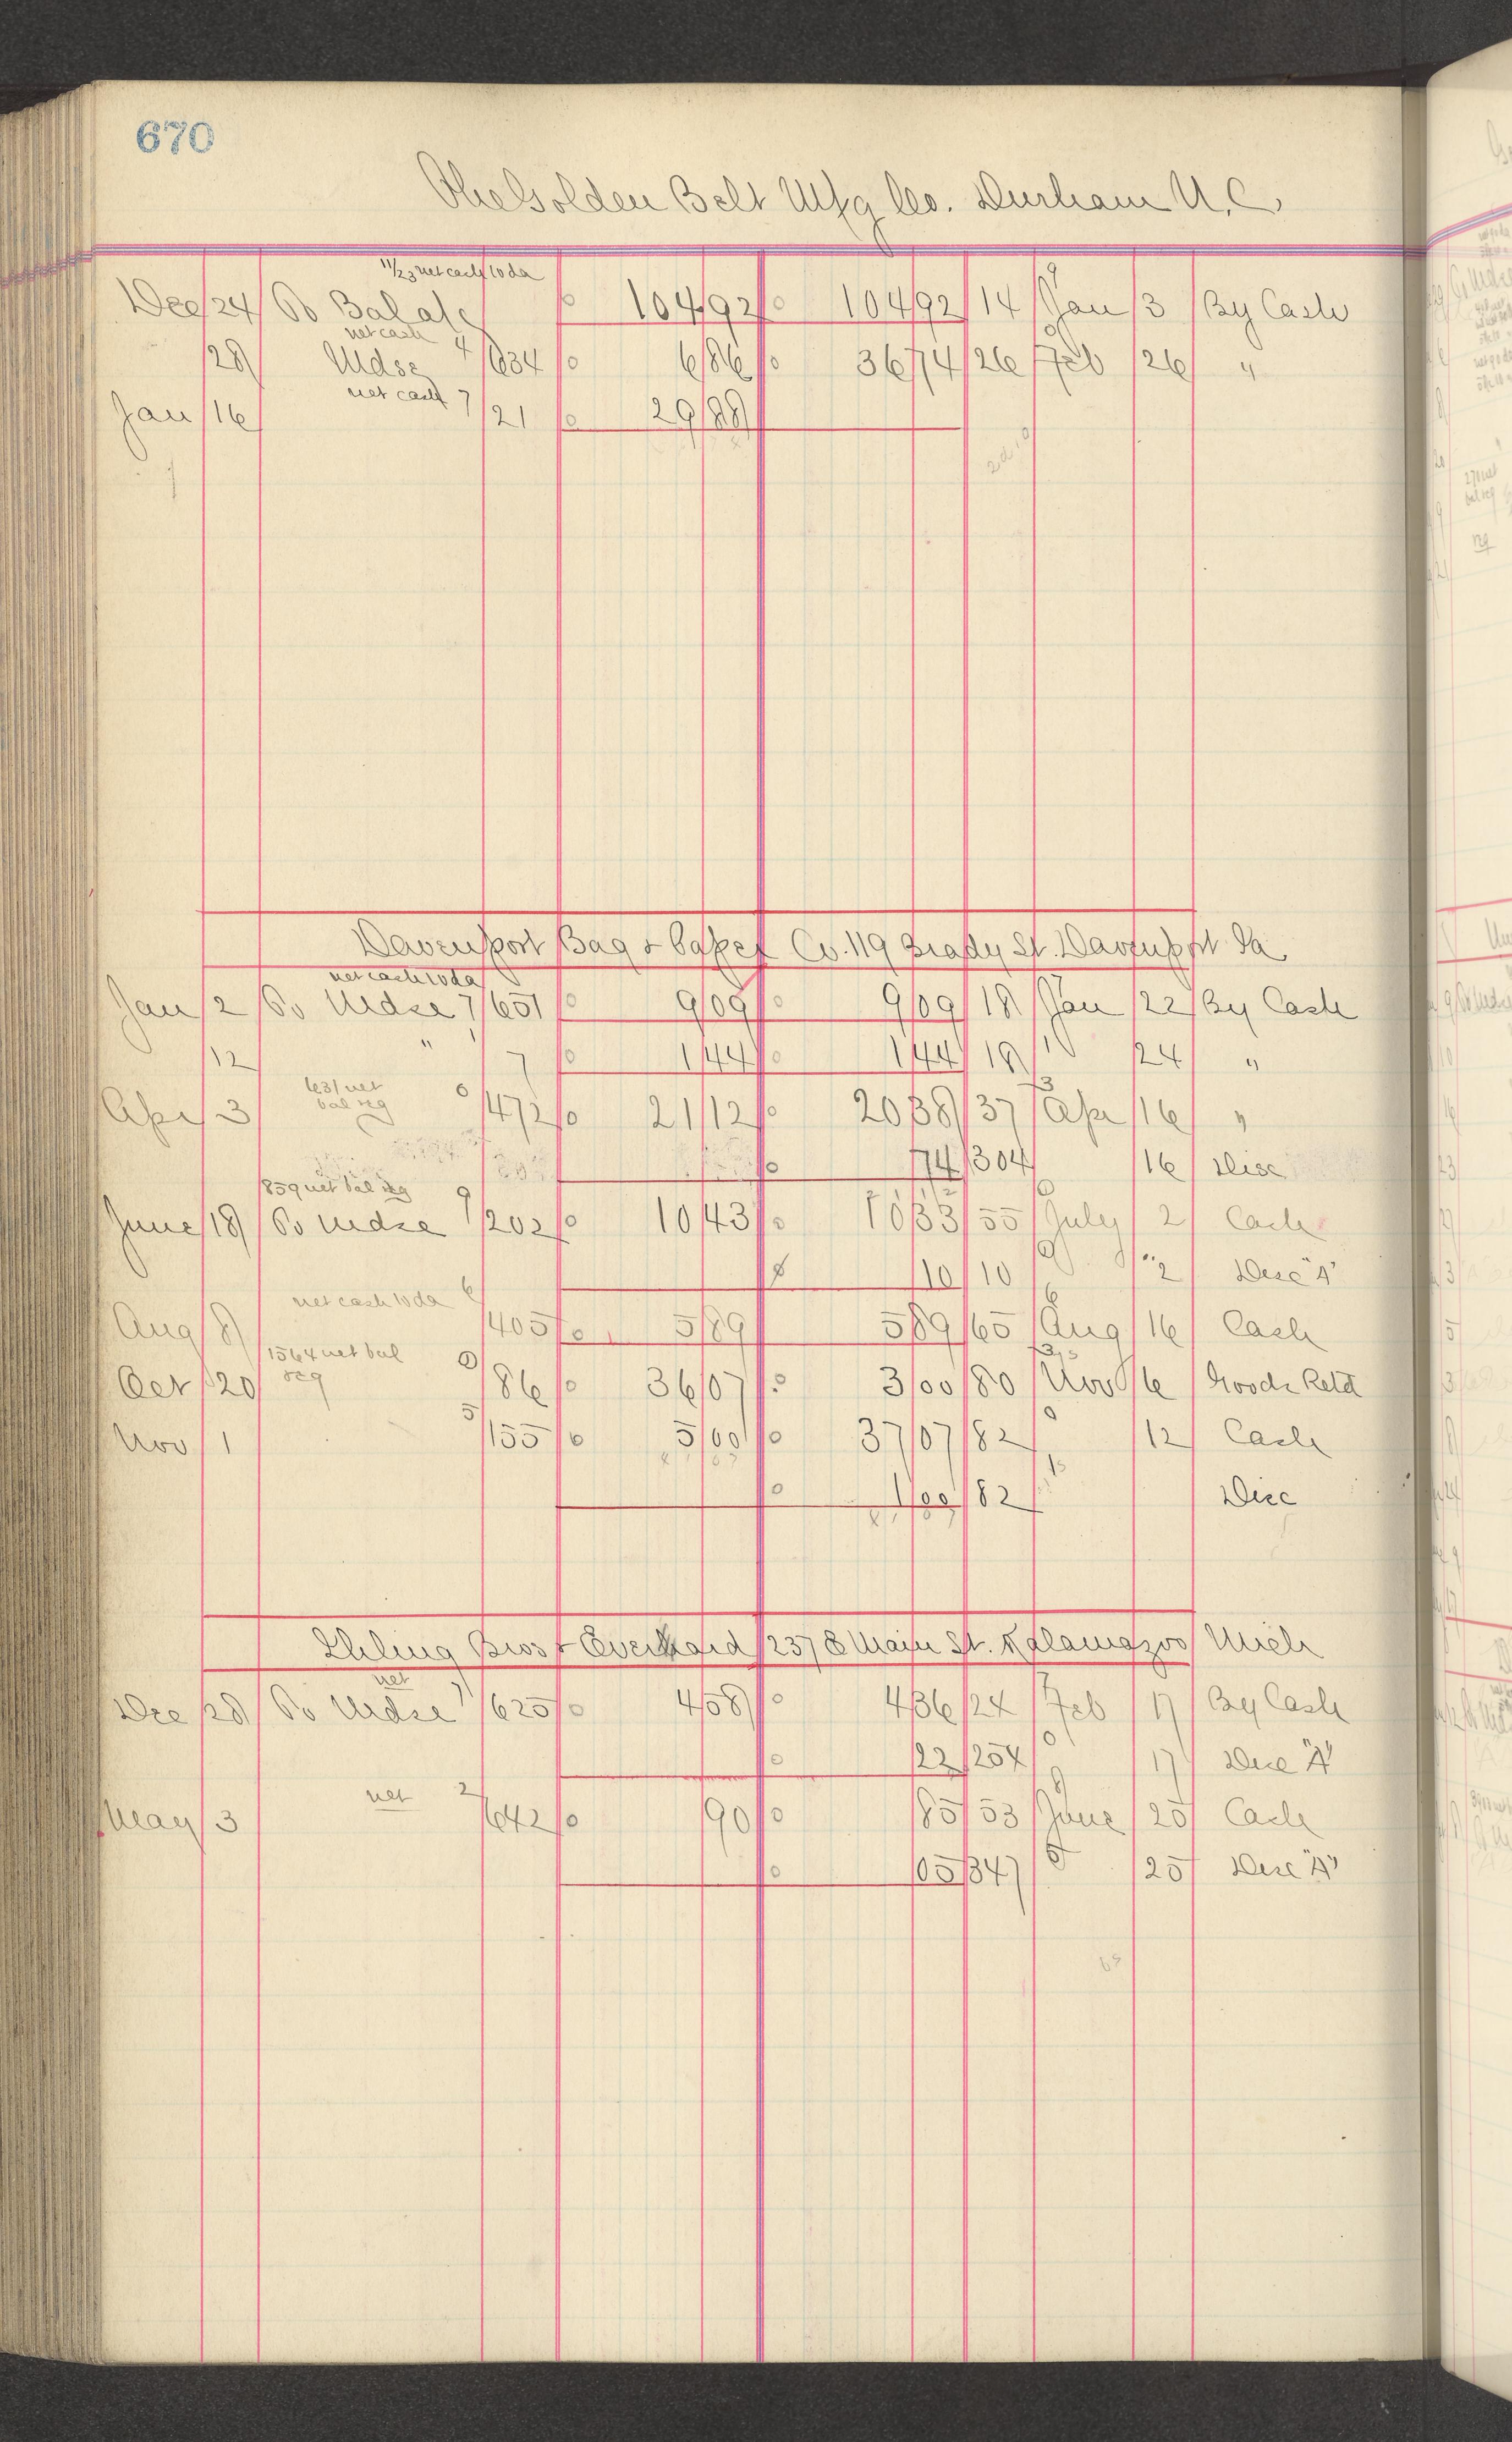 670
The Golden Belt Mfg Co. Durham N.C.
11/23 net cash 10 da
Dec 24 To Bal a/c 104 92 104 92 14 Jan 3 By Cash
net cash
28 Mdse 4 634 6 86 36 74 26 Feb 26 "
net cash
Jan 16 7 21 29 88
Davenport Bag & Paper Co. 119 Brady St. Davenport Ia
net cash 10 da
Jan 2 To Mdse 7 651 9 09 9 09 18 Jan 22 By Cash
12 " 7 1 44 1 44 19 24 "
631 net
bal seg
Apr 3 6 472 21 12 20 38 37 Apr 16 "
74 304 16 Disc
859 net bal seg
June 18 To Mdse 9 202 10 43 10 33 55 July 2 Cash
10 10 2 Disc "A"
net cash 10 da
Aug 8 6 405 5 89 5 89 65 Aug 16 Cash
1564 net bal
seg
Oct 20 86 36 07 3 00 80 Nov 6 Goods Retd
Nov 1 5 155 5 00 37 07 82 12 Cash
1 00 82 Disc
Ihling Bros & Everhard 237 E Main St. Kalamazoo Mich
net
Dec 28 To Mdse 7 625 4 58 4 36 24 Feb 17 By Cash
22 254 17 Disc "A"
net
May 3 2 642 90 85 53 June 25 Cash
05 347 25 Disc "A"